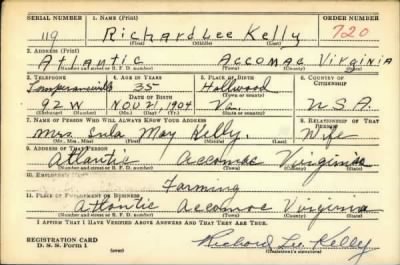 SERIAL NUMBER 1. NAME (Print) ORDER NUMBER
119 Richard Lee Kelly 720
(First) (Middle) (Last)
2. ADDRESS (Print)
Atlantic Accomac Virginia
(Number and street or R. F. D. number) (Town) (County) (State)
3. TELEPHONE 4. AGE IN YEARS 5. PLACE OF BIRTH 6. COUNTRY OF CITIZENSHIP
Temperanceville 35 Hallwood
DATE OF BIRTH (Town or county)
92W Nov 21, 1904 Va. U S A.
(Mo.) (Day) (Yr.) (State or country)
7. NAME OF PERSON WHO WILL ALWAYS KNOW YOUR ADDRESS 8. RELATIONSHIP OF THAT PERSON
Mrs. Sula May Kelly. Wife
(Mr., Mrs., Miss) (First) (Middle) (Last)
9. ADDRESS OF THAT PERSON
Atlantic Accomac Virginia
(Number and street or R. F. D. number) (Town) (County) (State)
10. EMPLOYER'S NAME
Farming
11. PLACE OF EMPLOYMENT OR BUSINESS
Atlantic Accomac Virginia
(Number and street or R. F. D. number) (Town) (County) (State)
I AFFIRM THAT I HAVE VERIFIED ABOVE ANSWERS AND THAT THEY ARE TRUE.
REGISTRATION CARD
D. S. S. Form 1 (over) Richard Lee Kelly
(Registrant's signature)